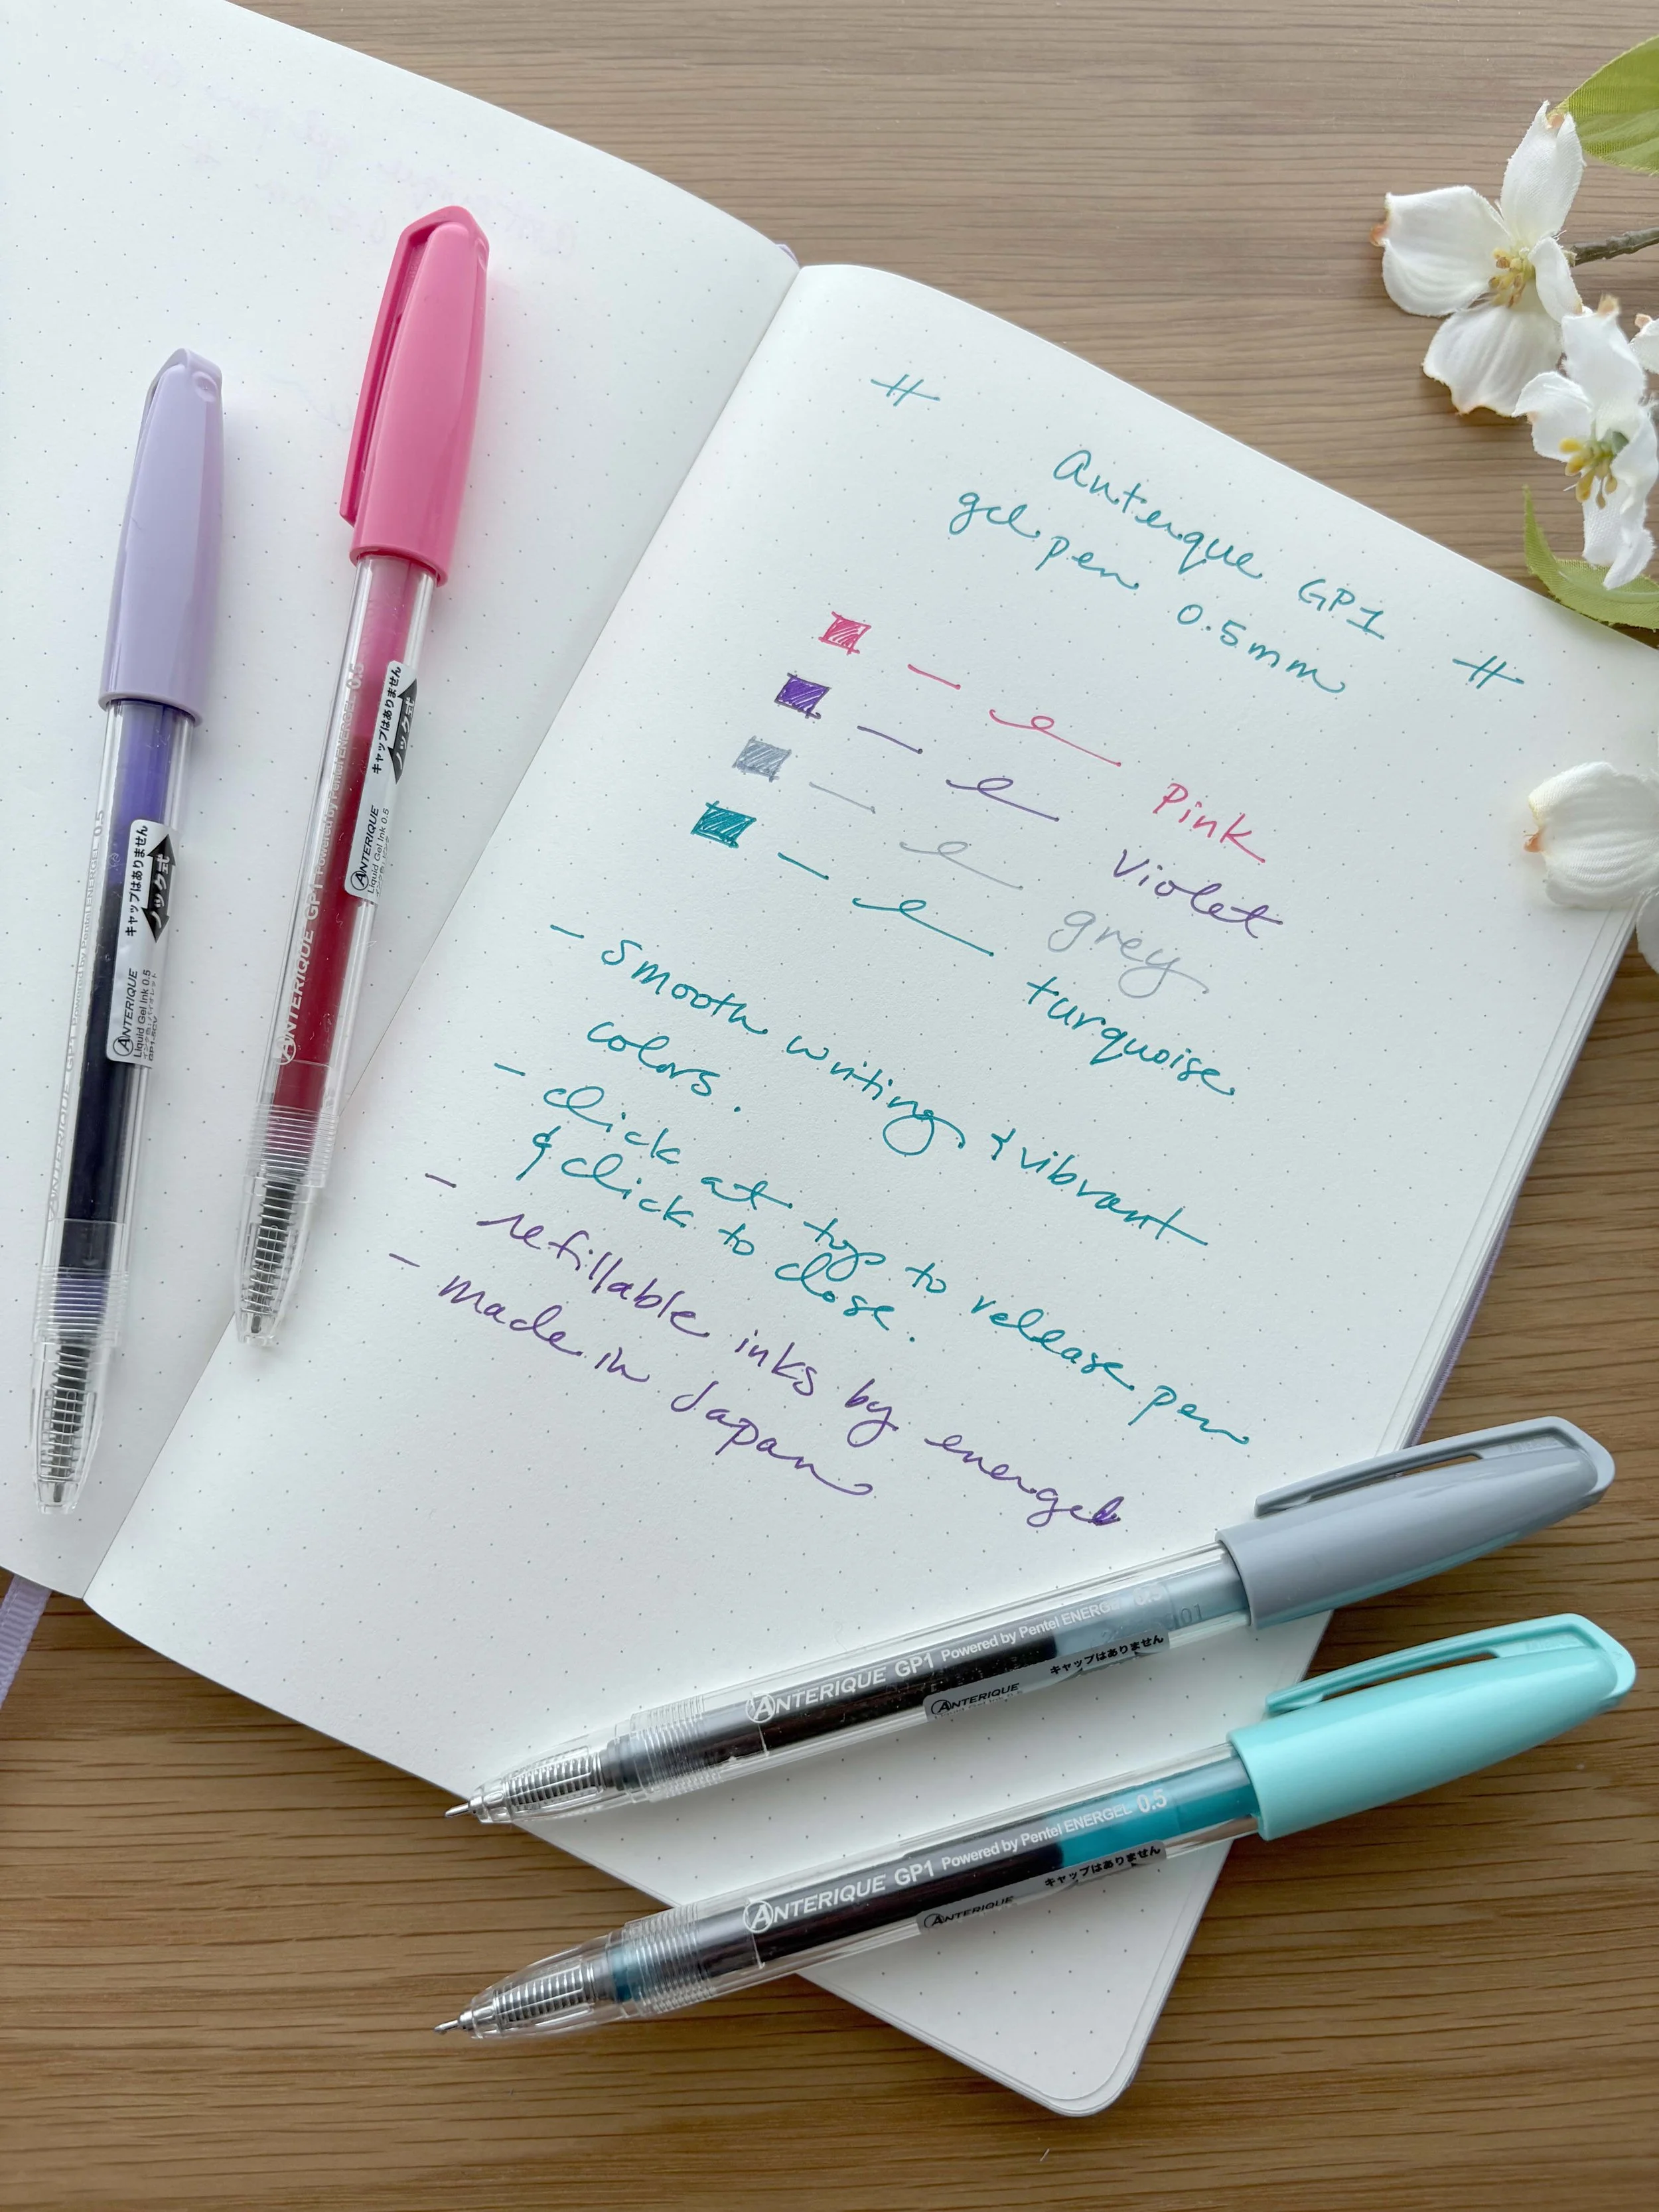 Anterique GP1
gel pen 0.5mm
Pink
Violet
grey
turquoise
- Smooth writing & vibrant
colors.
- click at top to release pen
& click to close.
- refillable inks by energel
- made in Japan
ANTERIQUE GP1 Powered by Pentel ENERGEL 0.5
キャップはありません
ノック式
ANTERIQUE
Liquid Gel Ink 0.5
ANTERIQUE GP1 Powered by Pentel ENERGEL 0.5
キャップはありません
ノック式
ANTERIQUE
Liquid Gel Ink 0.5
ANTERIQUE GP1 Powered by Pentel ENERGEL 0.5
キャップはありません
ANTERIQUE
ANTERIQUE GP1 Powered by Pentel ENERGEL 0.5
キャップはありません
ANTERIQUE